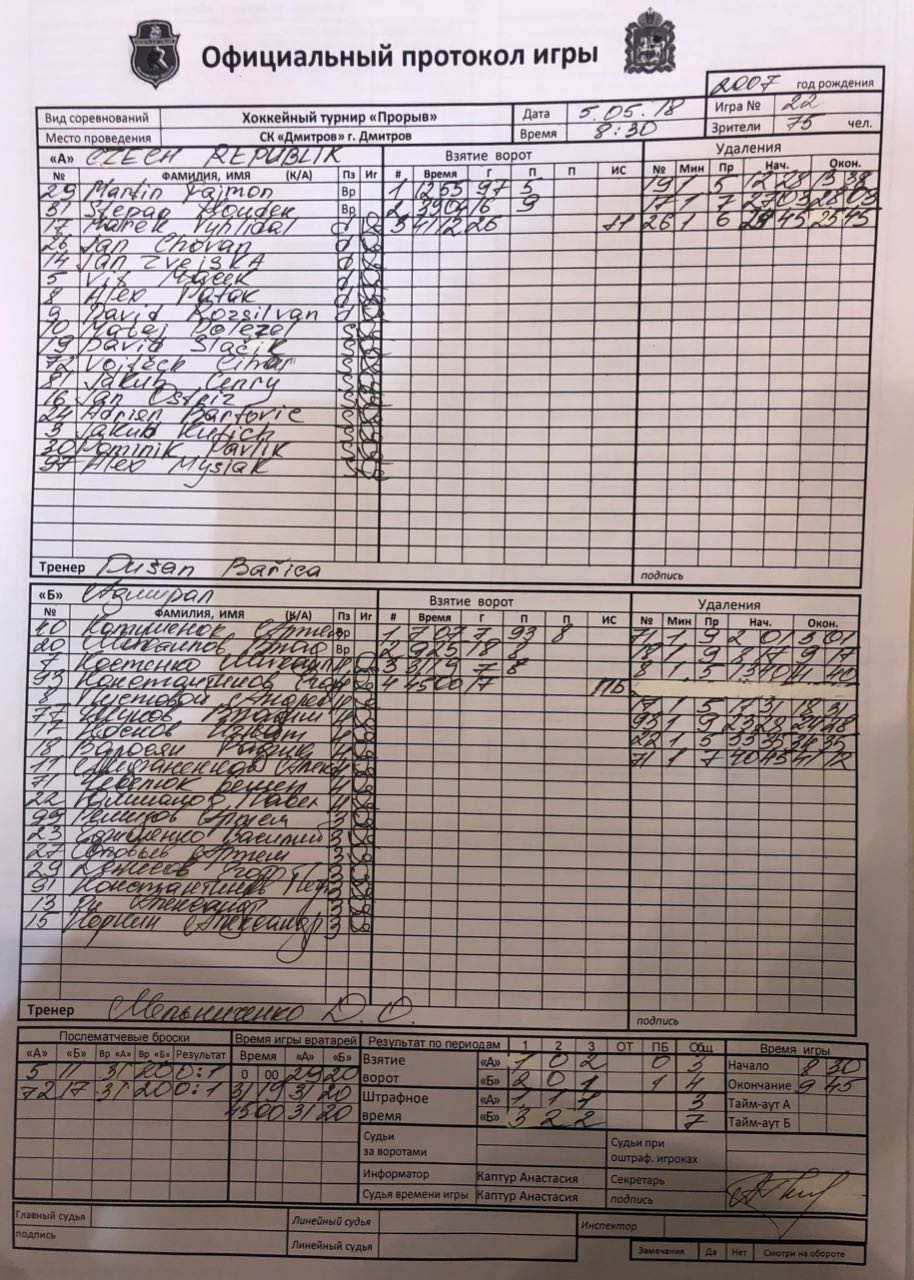 Официальный протокол игры
2007 год рождения
Вид соревнований Хоккейный турнир «Прорыв» Дата 5.05.18 Игра № 22
Место проведения СК «Дмитров» г. Дмитров Время 8:30 Зрители 75 чел.
«А» CZECH REPUBLIK Взятие ворот Удаления
№ ФАМИЛИЯ, ИМЯ (К/А) Пз Иг # Время Г П П ИС № Мин Пр Нач. Окон.
29 Martin Pajmon Вр 1 12 55 97 5 19 1 5 12 28 13 38
31 Stepan Houdek Вр 2 39 04 16 9 17 1 7 27 03 28 03
17 Marek Vyhlidal 3 41 12 26 26 1 6 45 25 45
26 Jan Chovan
14 Jan
5 Vit Macek
8 Alex Patak
9 David Rozsilvan
10 Matej Dolezel
19 David Slacik
72 Vojteck Cihar
81 Jakub Cerny
16 Jan Ostriz
24 Adrien Bartovic
3 Jakub
30 Dominik Pavlik
97 Alex Mysiak
Тренер Dušan Bařica
подпись
«Б» Адмирал Взятие ворот Удаления
№ ФАМИЛИЯ, ИМЯ (К/А) Пз Иг # Время Г П П ИС № Мин Пр Нач. Окон.
40 Катюшенок Артем Вр 1 7 07 7 93 8 71 1 9 2 01 3 01
20 Вр 2 9 25 18 8 18 1 9 8 17 9 17
7 Костенко 3 31 19 7 8 8 1 5 13 40 40
93 Константинов Егор 4 45 00 17 ПБ
8 Пустовой Андрей 17 1 5 17 31 18 31
77 Жуков 93 1 9 23 28
17 Носков 22 1 5 33 35 34 35
18 71 1 7 40 45 41 12
11
71
22 Павел
99 Артем
23 Василий
27 Соловьев Артем
29 Денисов Егор
91 Константинов
13 Александр
15 Александр
Тренер Мельниченко Д. О.
подпись
Послематчевые броски Время игры вратарей Результат по периодам 1 2 3 ОТ ПБ Общ Время игры
«А» «Б» Вр «А» Вр «Б» Результат Время «А» «Б» Взятие ворот «А» 1 0 2 0 3 Начало 8 30
5 11 31 20 0:1 0 00 29 20 «Б» 2 0 1 1 4 Окончание 9 45
72 17 31 20 0:1 31 19 31 20 Штрафное время «А» 1 1 1 3 Тайм-аут А
45 00 31 20 «Б» 3 2 2 7 Тайм-аут Б
Судьи за воротами Судьи при оштраф. игроках
Информатор Каптур Анастасия Секретарь
Судья времени игры Каптур Анастасия подпись
Главный судья Линейный судья Инспектор
подпись Линейный судья Замечания Да Нет Смотри на обороте